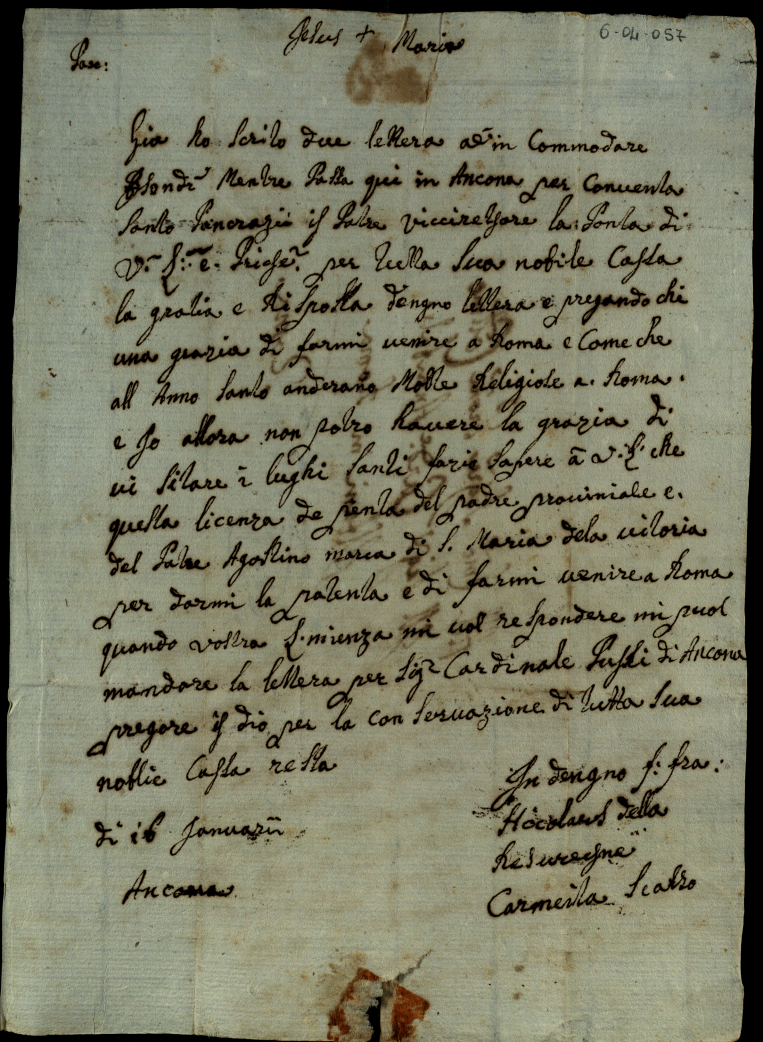 6-04-057
Jesus + Maria
Pax:
Gia ho scrito due lettera ad in Commodare
Mentre Passa qui in Ancona per Conventa
Santo Pancrazii il Patre la Ponta di
V. per tutta Sua nobile Cassa
la gratia e Risposta dengno lettera e pregando chi
una grazia di farmi venire a Roma e Come che
all Anno Santo anderano Molte Religiose a. Roma.
e Jo allora non potro havere la grazia di
vi sitare i lughi Santi fazio sapere a V. che
questa licenza de penta del padre prouinciale e.
del Patre Agostino maria di S. Maria dela vitoria
per darmi la patenta e di farmi venire a Roma
quando vostra mi vol respondere mi puol
mandare la lettera per Sig.r Cardinale di Ancona
pregare il dio per la con servazione di tutta Sua
noblie Cassa resta
In dengno f: fra:
della
di 16 Januarii
Ancona
Carmelita Scalzo